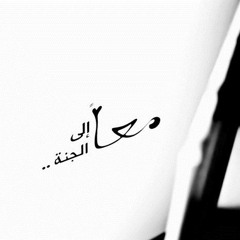 معاً إلى
الجنة ..